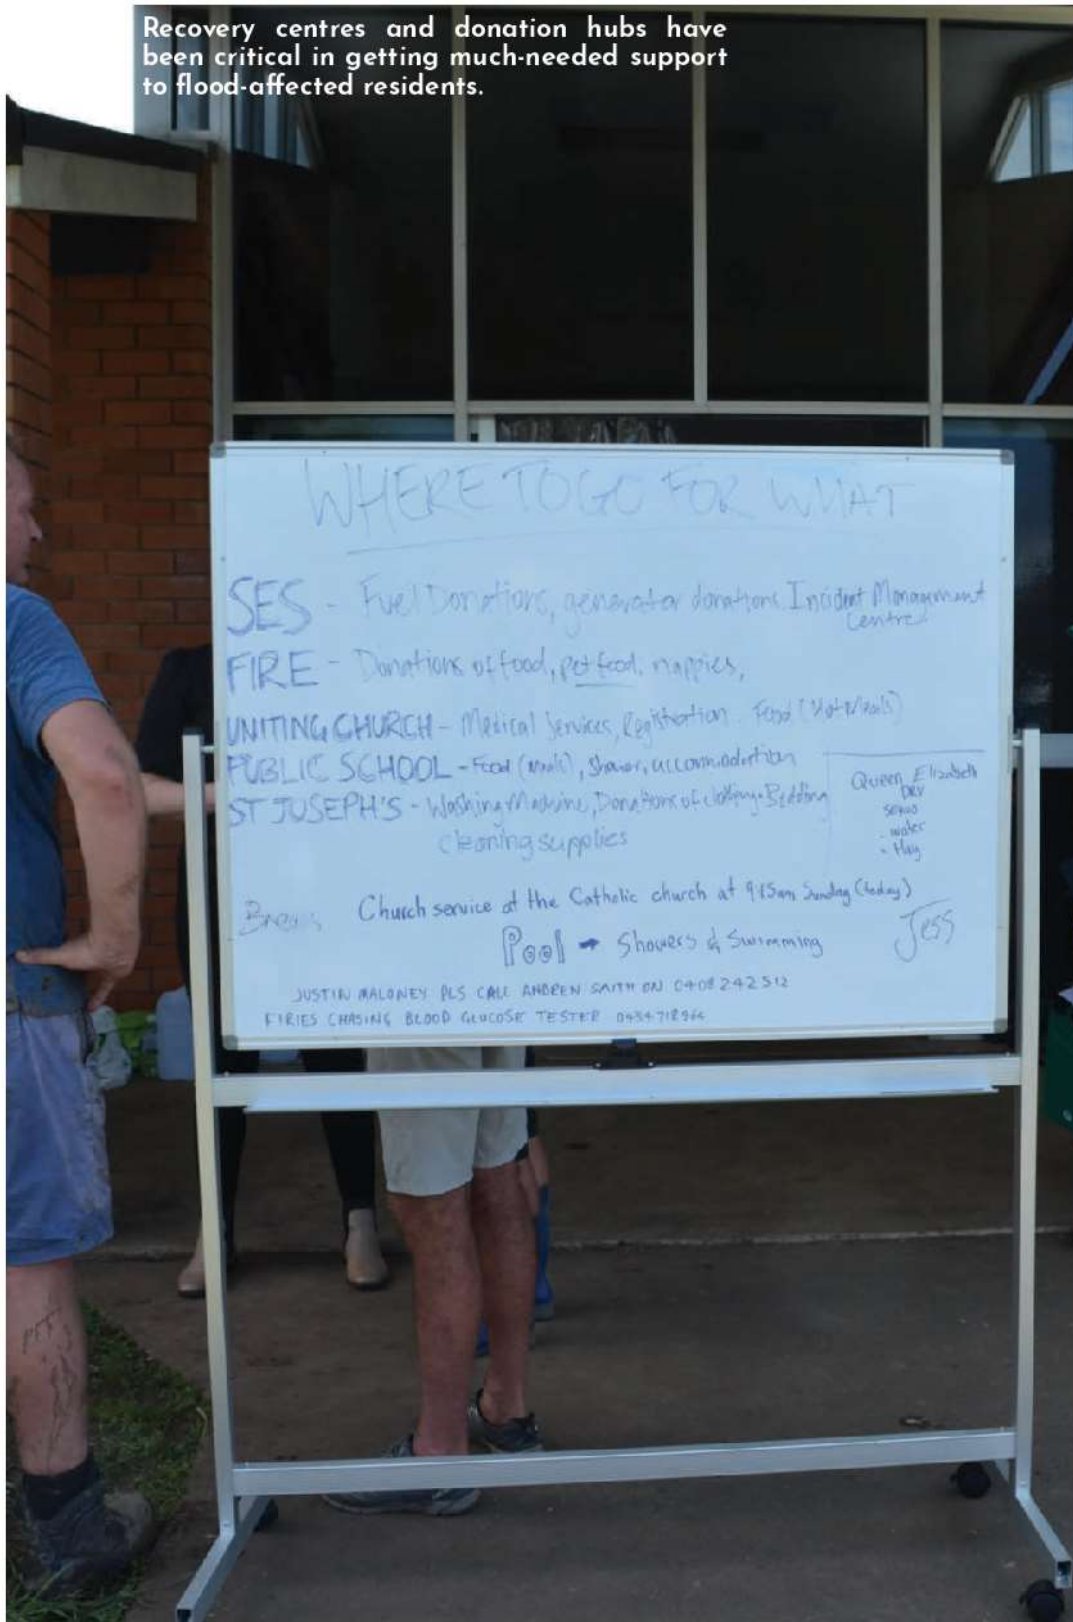 Recovery centres and donation hubs have
been critical in getting much-needed support
to flood-affected residents.
WHERE TO GO FOR WHAT
SES - Fuel Donations, generator donations. Incident Management
Centre
FIRE - Donations of food, pet food, nappies,
UNITING CHURCH - Medical Services, Registration. Food (Hot Meals)
PUBLIC SCHOOL - Food (meals), Shower, accommodation
ST JOSEPH'S - Washing Machine, Donations of clothing + Bedding
cleaning supplies
Queen Elizabeth
DRV
- water
- Hay
Church service at the Catholic church at 9:15am Sunday (today)
Pool → Showers & Swimming
Jess
JUSTIN MALONEY PLS CALL ANDREW SMITH ON 0408 242 512
FIRIES CHASING BLOOD GLUCOSE TESTER